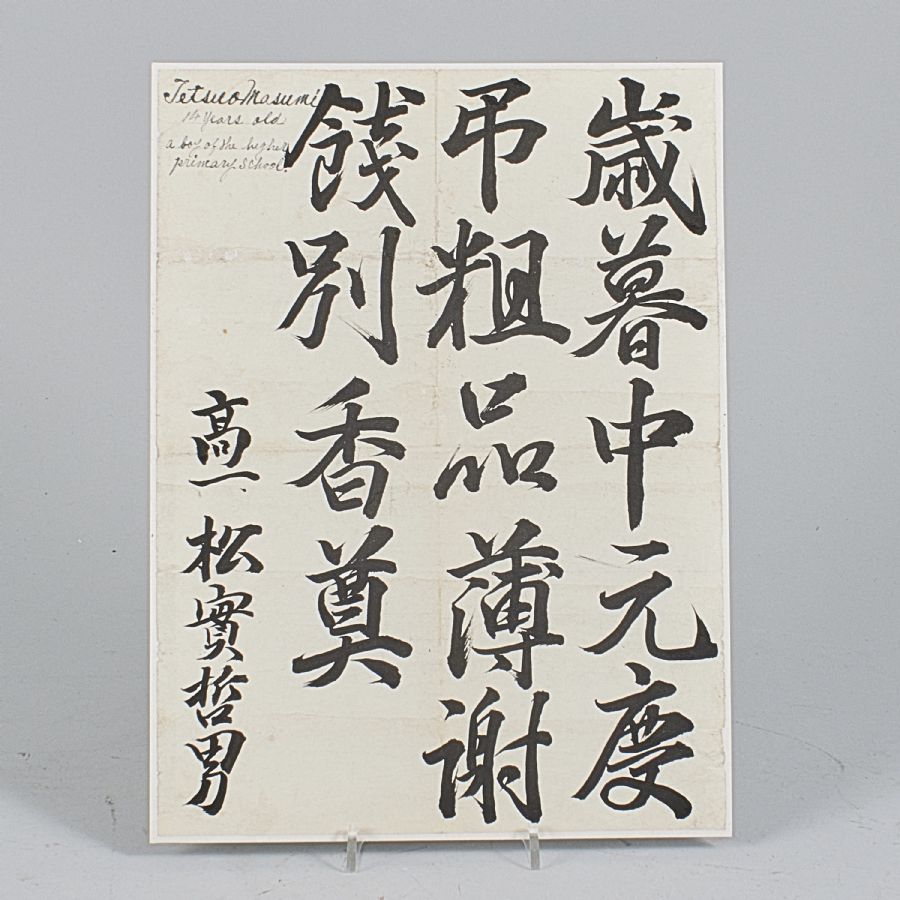 歳暮中元慶
弔粗品薄謝
餞別香奠
高一、松實哲男
Tetsuo Masumi
14 Years old
a boy of the higher
primary school.